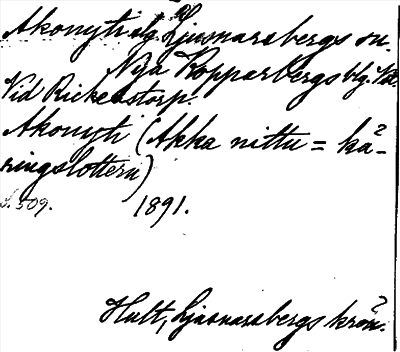 Akonyti utg. af Ljusnarsbergs sn.
Nya Kopparbergs blg. Vm.
Vid Rickenstorp.
Akonyti (Akka nittu = kä-
ringslotten)
s. 509. 1891.
Hult, Ljusnarsbergs krön.